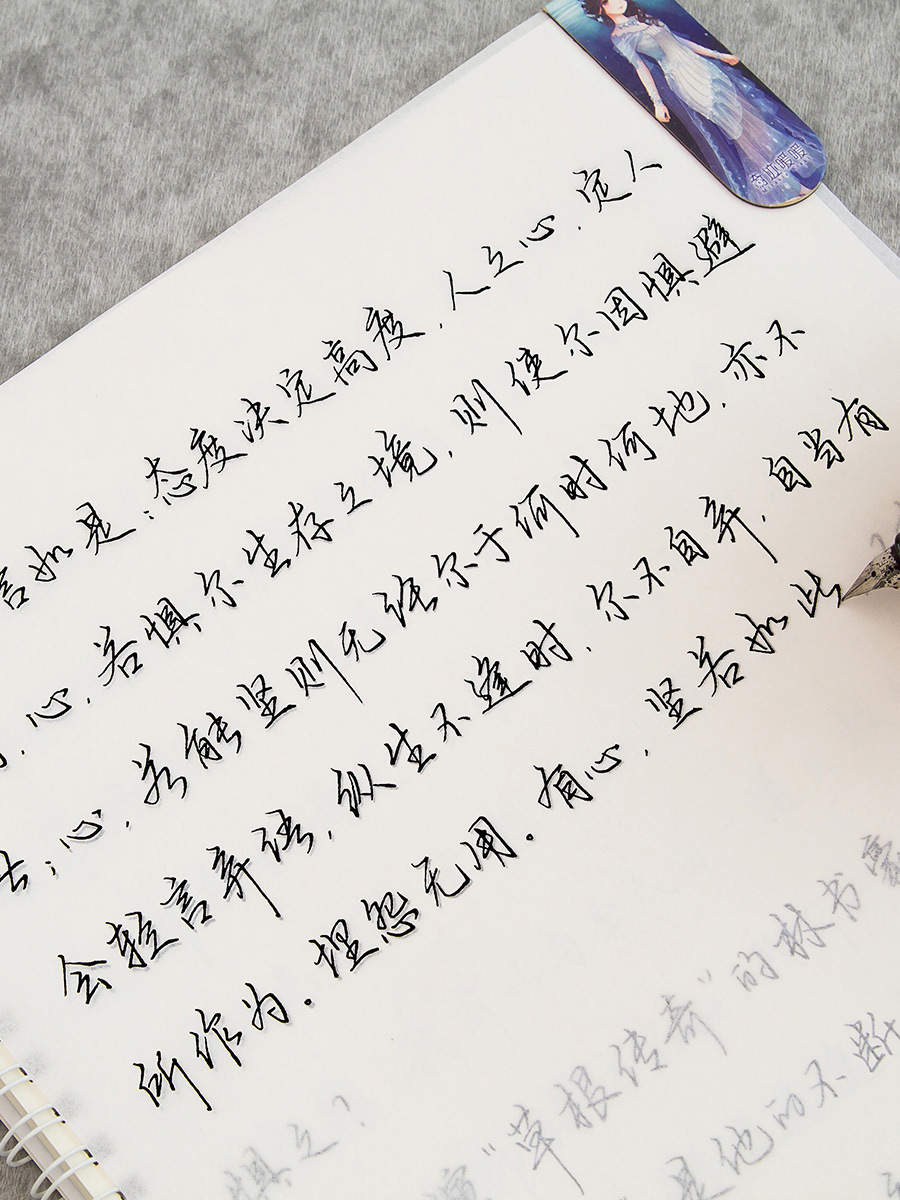 奇迹暖暖
言如是:态度决定高度,人之心,定人
心,若惧尔生存之境,则使尔因惧避
去;心,若能坚则无论尔于何时何地,亦不
会轻言弃语,纵生不逢时,尔不自弃,自当有
所作为。埋怨无用。有心,坚若如此
"草根传奇"的林书豪
惧之?
是他的不断